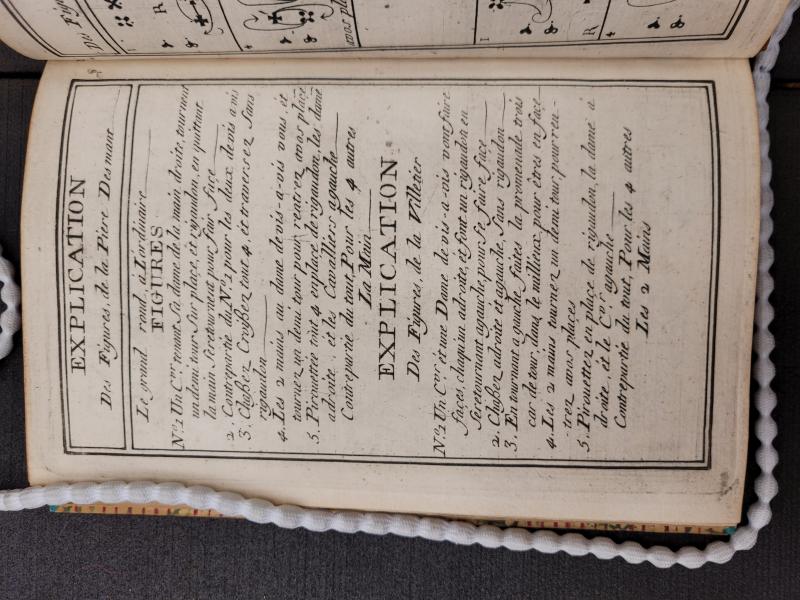 EXPLICATION
Des Figures, de la Piere Desmant
Le grand rond, a L'ordinaire
FIGURES
No. 1 Un Cer. tenant Sa dame de la main droite, tournent
un demi tour Sur place, et rigaudon, en quittant
la main Seretournent pour faire face
2. Contrepartie du No. 1 pour les deux devis a vis
3. Chaßez Croißez tout 4. et traversez Sans
rigaudon
4. Les 2 mains au dame de vis-a-vis vous, et
tournez un demi tour pour rentrez a vos place
5. Pirouettée tout 4 en place de rigaudon, les dame
adroite, et les Cavalliers agauche
Contrepartie du tout, Pour les 4 autres
La Main
EXPLICATION
Des Figures, de la Villetier
No. 1 Un Cer. et une Dame de vis-a-vis vont faire
faces, chaqu'un adroite, et font un rigaudon en
Seretournant agauche, pour Se faire face
2. Chaßez adroite et agauche, Sans rigaudon
3. En tournant a gauche, faites la promenade trois
car de tour, dans le millieux, pour êtres en face
4. Les 2 mains tournez un demi tour, pour ren-
-trez a vos places
5. Pirouettez en place de rigaudon, la dame à
droite, et le Cer. agauche
Contrepartie du tout, Pour les 4 autres
Les 2 Mains
Des Fig
a vos pla
R
R